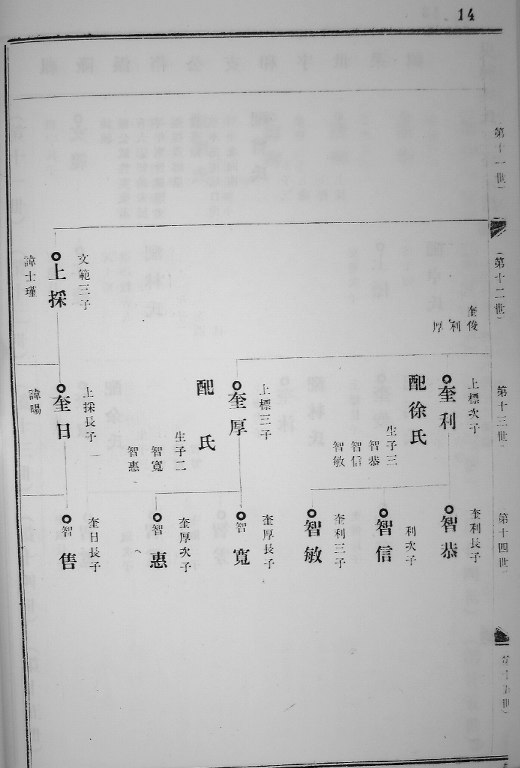 14
第十一世
第十二世
奎俊
利
厚
文範三子
上採
諱士瑾
第十三世
上標次子
奎利
配徐氏
生子三
智恭
智信
智敏
上標三子
奎厚
配 氏
生子二
智寬
智惠
上採長子
奎日
諱暘
第十四世
奎利長子
智恭
利次子
智信
奎利三子
智敏
奎厚長子
智寬
奎厚次子
智惠
奎日長子
智售
第十五世